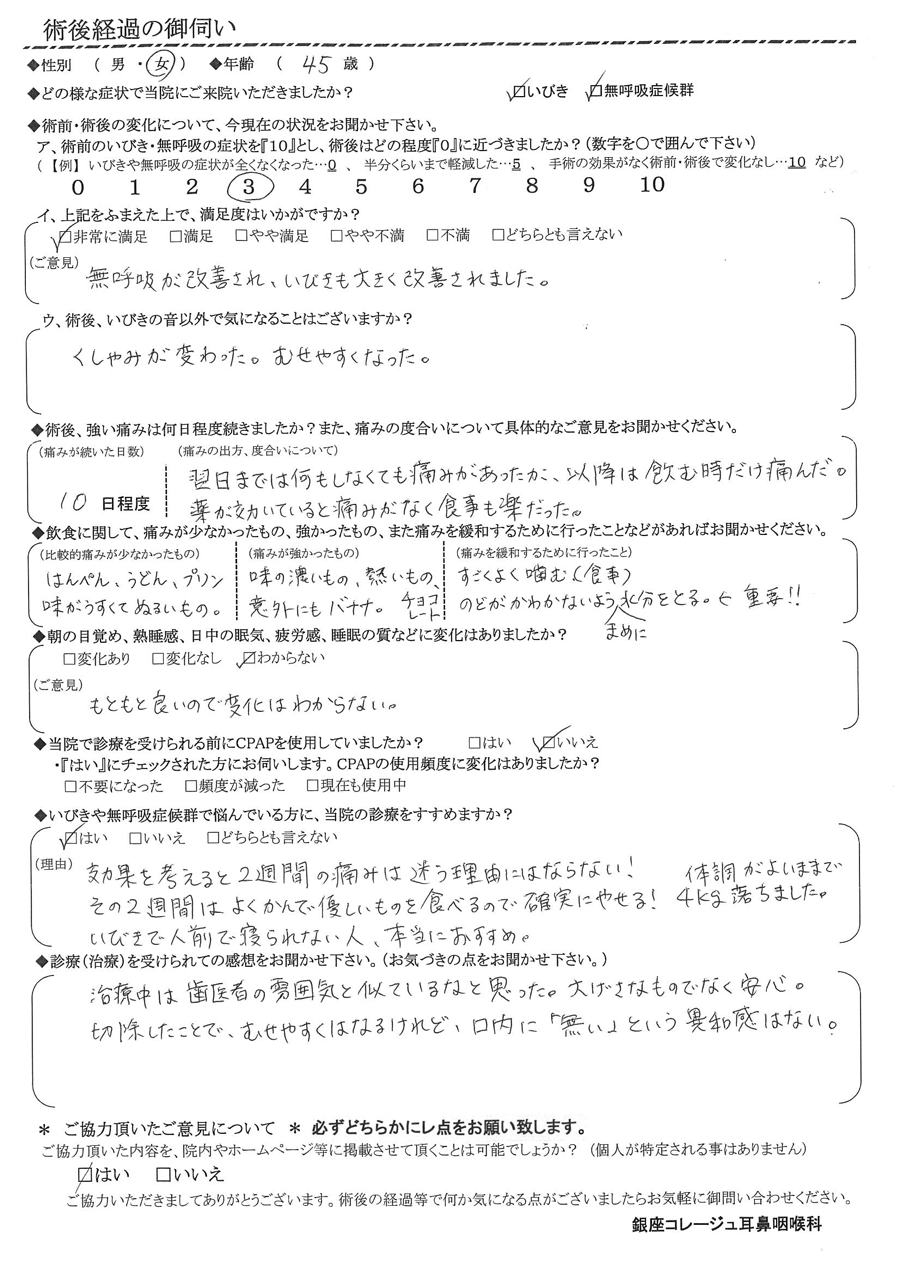 術後経過の御伺い
◆性別 （ 男 ・ 女 ） ◆年齢 （ 45 歳 ）
◆どの様な症状で当院にご来院いただきましたか？ ☑いびき ☑無呼吸症候群
◆術前・術後の変化について、今現在の状況をお聞かせ下さい。
ア、術前のいびき・無呼吸の症状を『10』とし、術後はどの程度『0』に近づきましたか？（数字を〇で囲んで下さい）
（【例】いびきや無呼吸の症状が全くなくなった…0 、 半分くらいまで軽減した…5 、 手術の効果がなく術前・術後で変化なし…10 など）
0 1 2 3 4 5 6 7 8 9 10
イ、上記をふまえた上で、満足度はいかがですか？
☑非常に満足 □満足 □やや満足 □やや不満 □不満 □どちらとも言えない
（ご意見）
無呼吸が改善され、いびきも大きく改善されました。
ウ、術後、いびきの音以外で気になることはございますか？
くしゃみが変わった。むせやすくなった。
◆術後、強い痛みは何日程度続きましたか？また、痛みの度合いについて具体的なご意見をお聞かせください。
（痛みが続いた日数） （痛みの出方、度合いについて）
翌日までは何もしなくても痛みがあったが、以降は飲む時だけ痛んだ。
10 日程度 薬が効いていると痛みがなく食事も楽だった。
◆飲食に関して、痛みが少なかったもの、強かったもの、また痛みを緩和するために行ったことなどがあればお聞かせください。
（比較的痛みが少なかったもの） （痛みが強かったもの） （痛みを緩和するために行ったこと）
はんぺん、うどん、プリン 味の濃いもの、熱いもの、 すごくよく噛む（食事）
味がうすくてぬるいもの。 意外にもバナナ。 チョコレート のどがかわかないようまめに水分をとる。← 重要！！
◆朝の目覚め、熟睡感、日中の眠気、疲労感、睡眠の質などに変化はありましたか？
□変化あり □変化なし ☑わからない
（ご意見）
もともと良いので変化はわからない。
◆当院で診療を受けられる前にCPAPを使用していましたか？ □はい ☑いいえ
・『はい』にチェックされた方にお伺いします。CPAPの使用頻度に変化はありましたか？
□不要になった □頻度が減った □現在も使用中
◆いびきや無呼吸症候群で悩んでいる方に、当院の診療をすすめますか？
☑はい □いいえ □どちらとも言えない
（理由）
効果を考えると2週間の痛みは迷う理由にはならない！ 体調がよいままで
その2週間はよくかんで優しいものを食べるので確実にやせる！ 4kg落ちました。
いびきで人前で寝られない人、本当におすすめ。
◆診療（治療）を受けられての感想をお聞かせ下さい。（お気づきの点をお聞かせ下さい。）
治療中は歯医者の雰囲気と似ているなと思った。大げさなものでなく安心。
切除したことで、むせやすくはなるけれど、口内に「無い」という異和感はない。
＊ ご協力頂いたご意見について ＊ 必ずどちらかにレ点をお願い致します。
ご協力頂いた内容を、院内やホームページ等に掲載させて頂くことは可能でしょうか？（個人が特定される事はありません）
☑はい □いいえ
ご協力いただきましてありがとうございます。術後の経過等で何か気になる点がございましたらお気軽に御問い合わせください。
銀座コレージュ耳鼻咽喉科